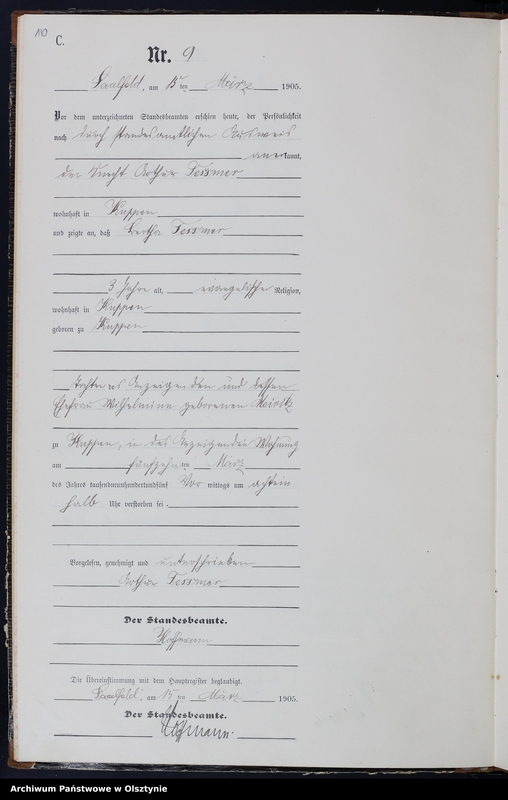 110
C.
Nr. 9
Saalfeld, am 15ten März 1905.
Vor dem unterzeichneten Standesbeamten erschien heute, der Persönlichkeit
nach durch standesamtlichen Ausweis
anerkannt,
der Knecht Arthur Tessmer
wohnhaft in Kuppen
und zeigte an, daß Bertha Tessmer
3 Jahre alt, evangelischer Religion,
wohnhaft in Kuppen
geboren zu Kuppen
Tochter des Anzeigenden und dessen
Ehefrau Wilhelmine geborenen
zu Kuppen, in des Anzeigenden Wohnung
am fünfzehnten März
des Jahres tausendneunhundertundfünf Vormittags um
halb Uhr verstorben sei.
Vorgelesen, genehmigt und unterschrieben
Arthur Tessmer
Der Standesbeamte.
Hoffmann
Die Übereinstimmung mit dem Hauptregister beglaubigt.
Saalfeld, am 15ten März 1905.
Der Standesbeamte.
Hoffmann.
Archiwum Państwowe w Olsztynie